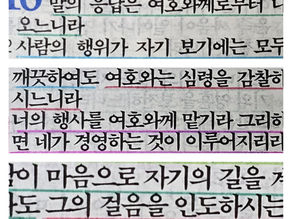 말의 응답은 여호와께로부터 나
오느니라
2 사람의 행위가 자기 보기에는 모두
깨끗하여도 여호와는 심령을 감찰하
시느니라
너의 행사를 여호와께 맡기라 그리하
면 네가 경영하는 것이 이루어지리라
이 마음으로 자기의 길을 계
도 그의 걸음을 인도하시는